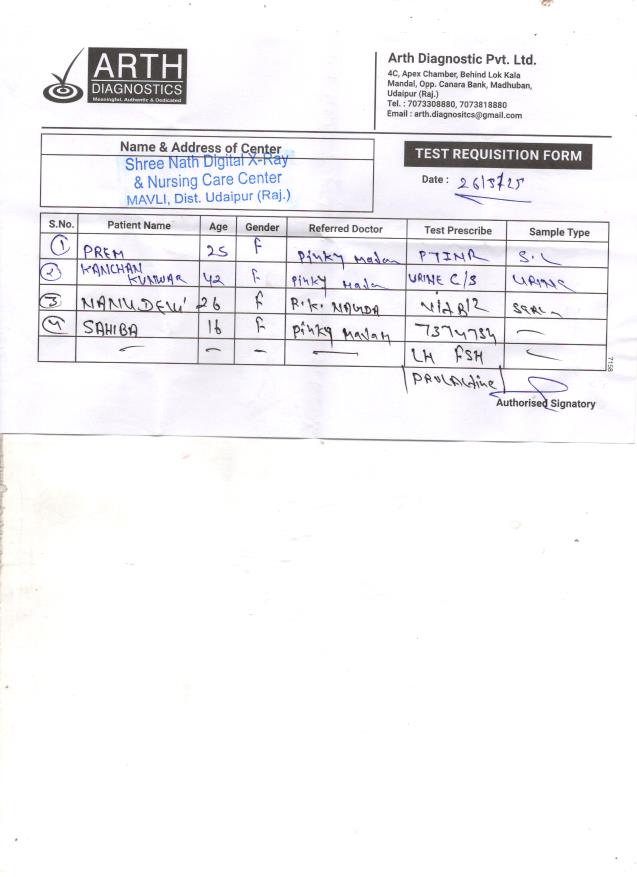 ARTH
DIAGNOSTICS
Meaningful, Authentic & Dedicated
Arth Diagnostic Pvt. Ltd.
4C, Apex Chamber, Behind Lok Kala
Mandal, Opp. Canara Bank, Madhuban,
Udaipur (Raj.)
Tel. : 7073308880, 7073818880
Email : arth.diagnositcs@gmail.com
Name & Address of Center
Shree Nath Digital X-Ray
& Nursing Care Center
MAVLI, Dist. Udaipur (Raj.)
TEST REQUISITION FORM
Date : 26/5/25
S.No. Patient Name Age Gender Referred Doctor Test Prescribe Sample Type
1 PREM 25 F Pinky Madan PTINR
2 KANCHAN KUNWAR 42 F Pinky Madan URINE C/S URINE
3 NANU DEVI 26 F R.K. Vit B12
4 SAHIBA 16 F Pinky Madan T3T4TSH
LH FSH
Authorised Signatory
7158